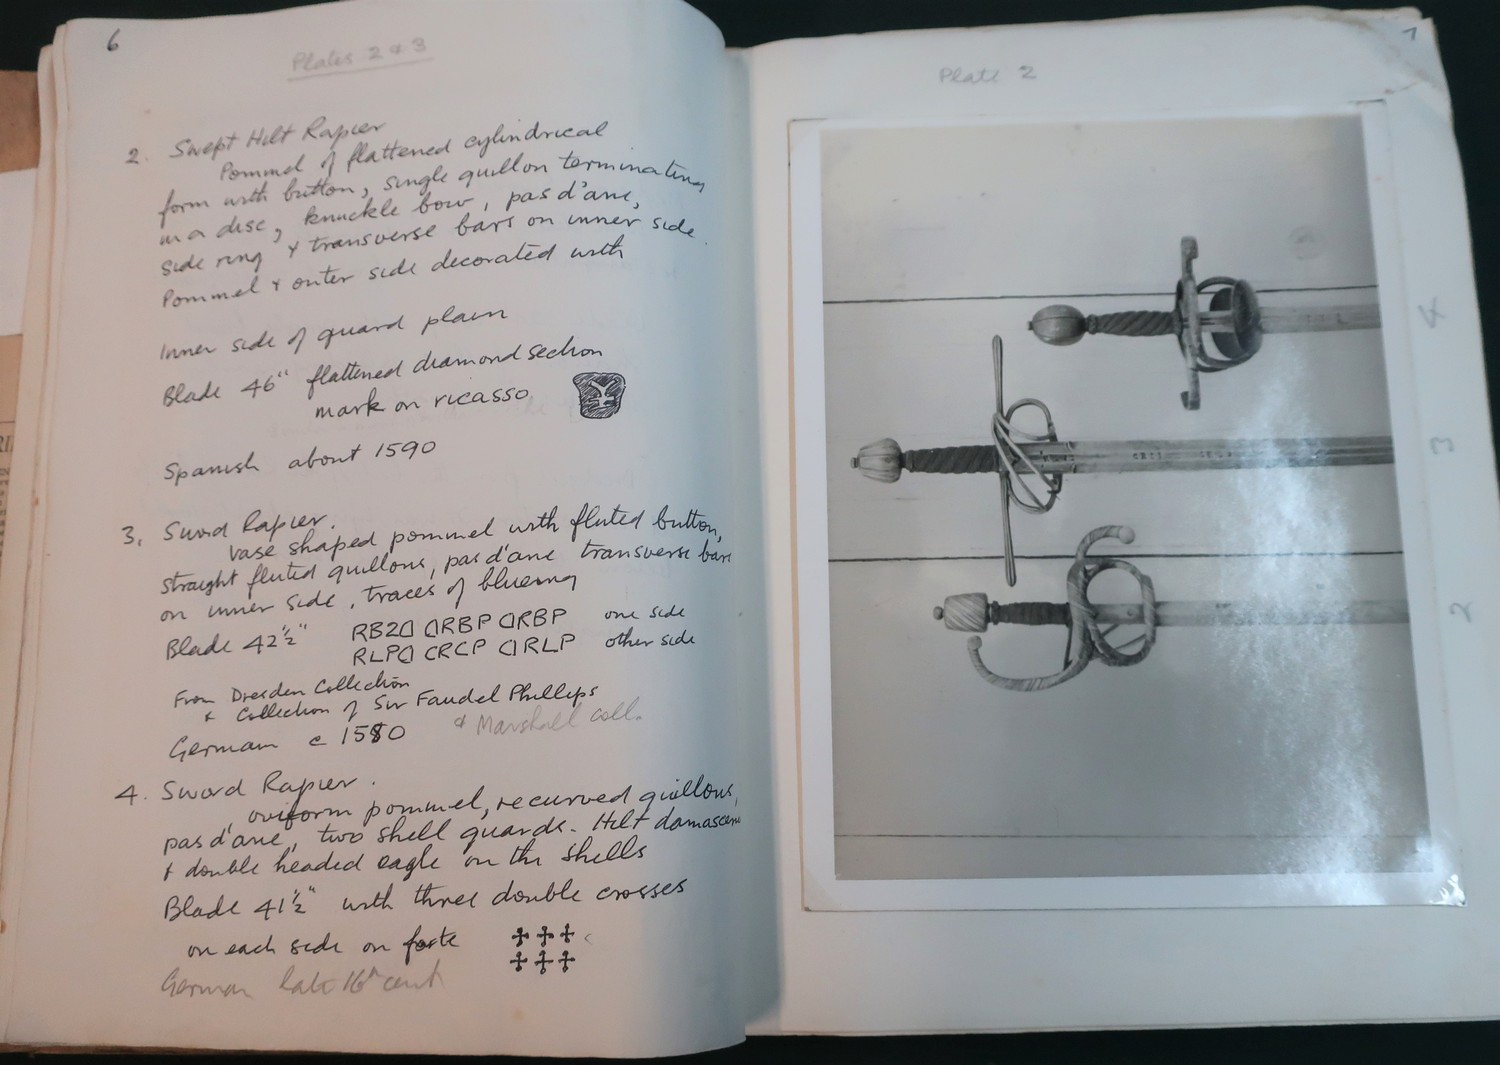 6
Plates 2 & 3
2. Swept Hilt Rapier
Pommel of flattened cylindrical
form with button, single quillon terminating
in a disc, knuckle bow, pas d'ane,
side ring & transverse bars on inner side.
Pommel & outer side decorated with
Inner side of guard plain
Blade 46" flattened diamond section
mark on ricasso
Spanish about 1590
3. Sword Rapier.
Vase shaped pommel with fluted button,
straight fluted quillons, pas d'ane transverse bars
on inner side, traces of blueing
Blade 42½" RB2D DRBP DRBP one side
RLPD CRCP DRLP other side
From Dresden Collection
& Collection of Sir Faudel Phillips
& Marshall coll.
German c 1580
4. Sword Rapier.
oviform pommel, recurved quillons,
pas d'ane, two shell guards. Hilt damascene
& double headed eagle on the shells
Blade 41½" with three double crosses
on each side on forte
German late 16th cent
Plate 2
7
4
3
2